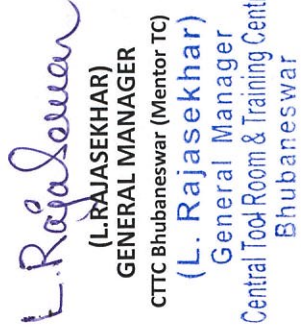 L. Rajasekhar
(L.RAJASEKHAR)
GENERAL MANAGER
CTTC Bhubaneswar (Mentor TC)
(L. Rajasekhar)
General Manager
Central Tool Room & Training Cent
Bhubaneswar